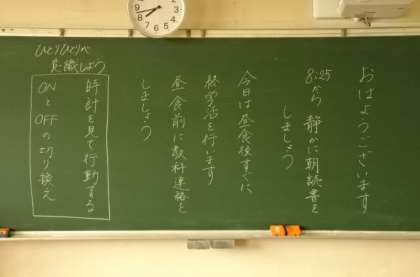 おはようございます
8:25から 静かに朝読書を
しましょう
今日は昼食後すぐに
終学活を行います
昼食前に教科連絡を
しましょう
ひとりひとりが
意識しよう
時計を見て行動する
ONとOFFの切り換え